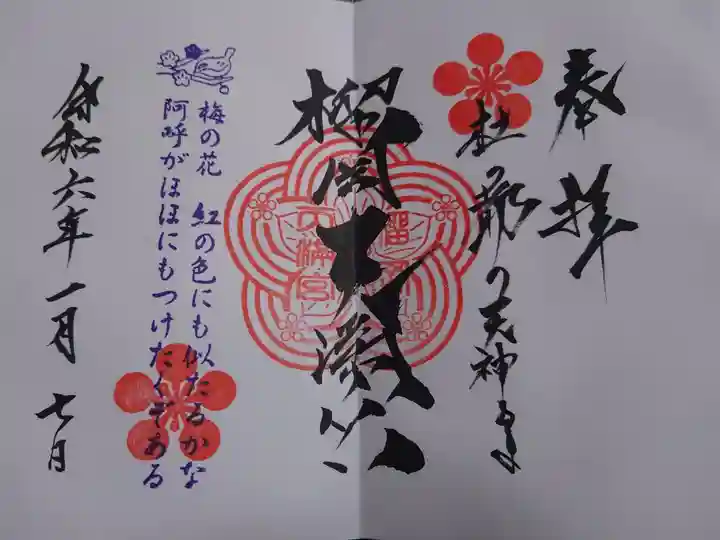 奉拝
杜の都の天神さま
榴岡天満宮
榴岡
天満宮
梅の花　紅の色にも似たるかな
阿呼がほほにもつけたくぞある
令和六年一月七日